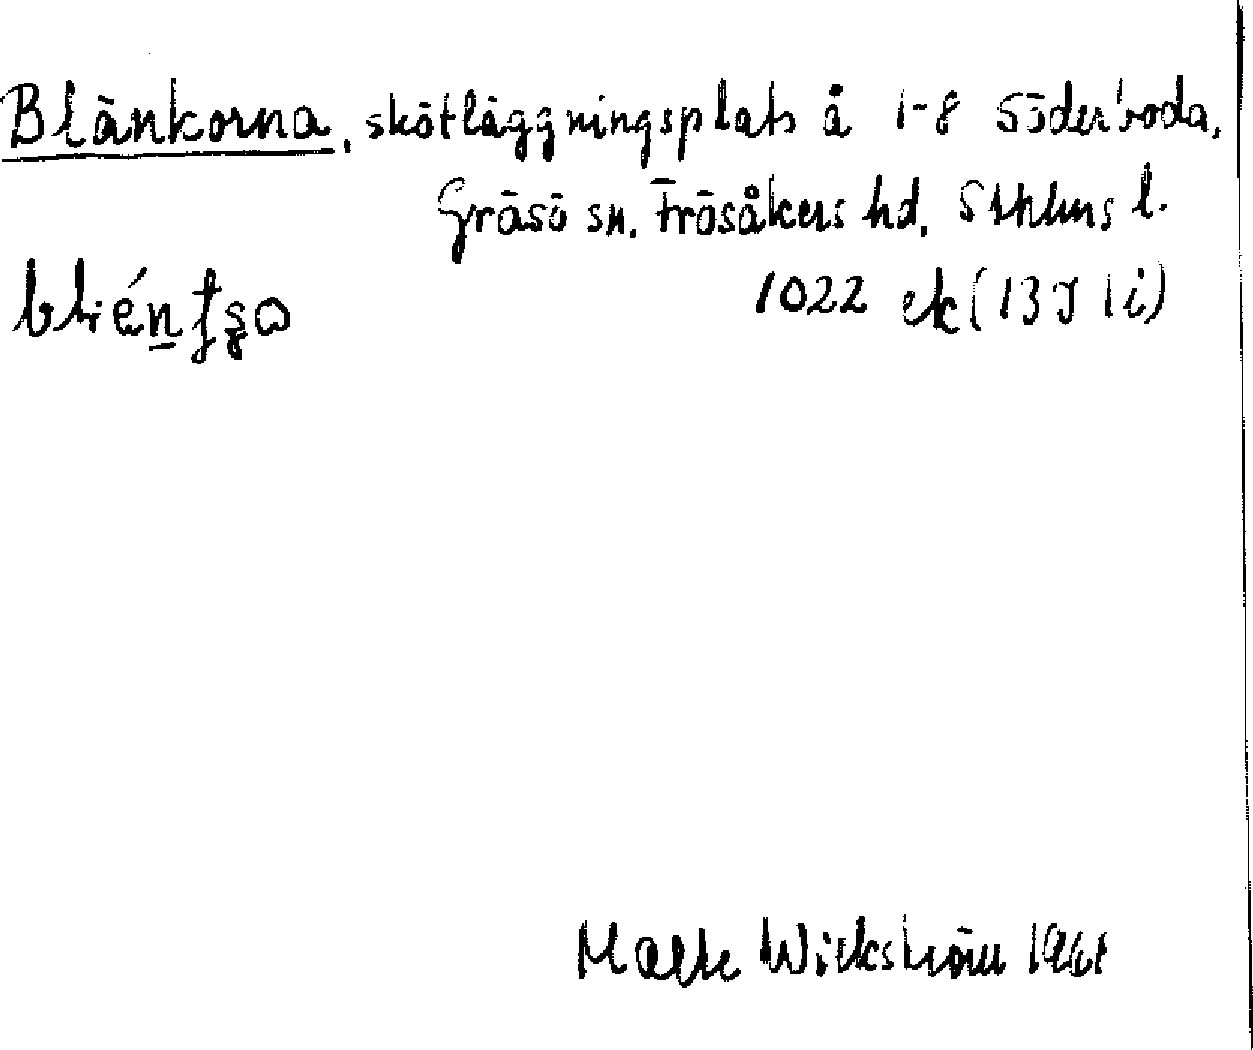 Blänkorna, skötläggningsplats å 1-8 Söderboda,
Gräsö sn. Frösåkers hd. Sthlms l.
1022 ek (13J 1i)
Malte Wickström